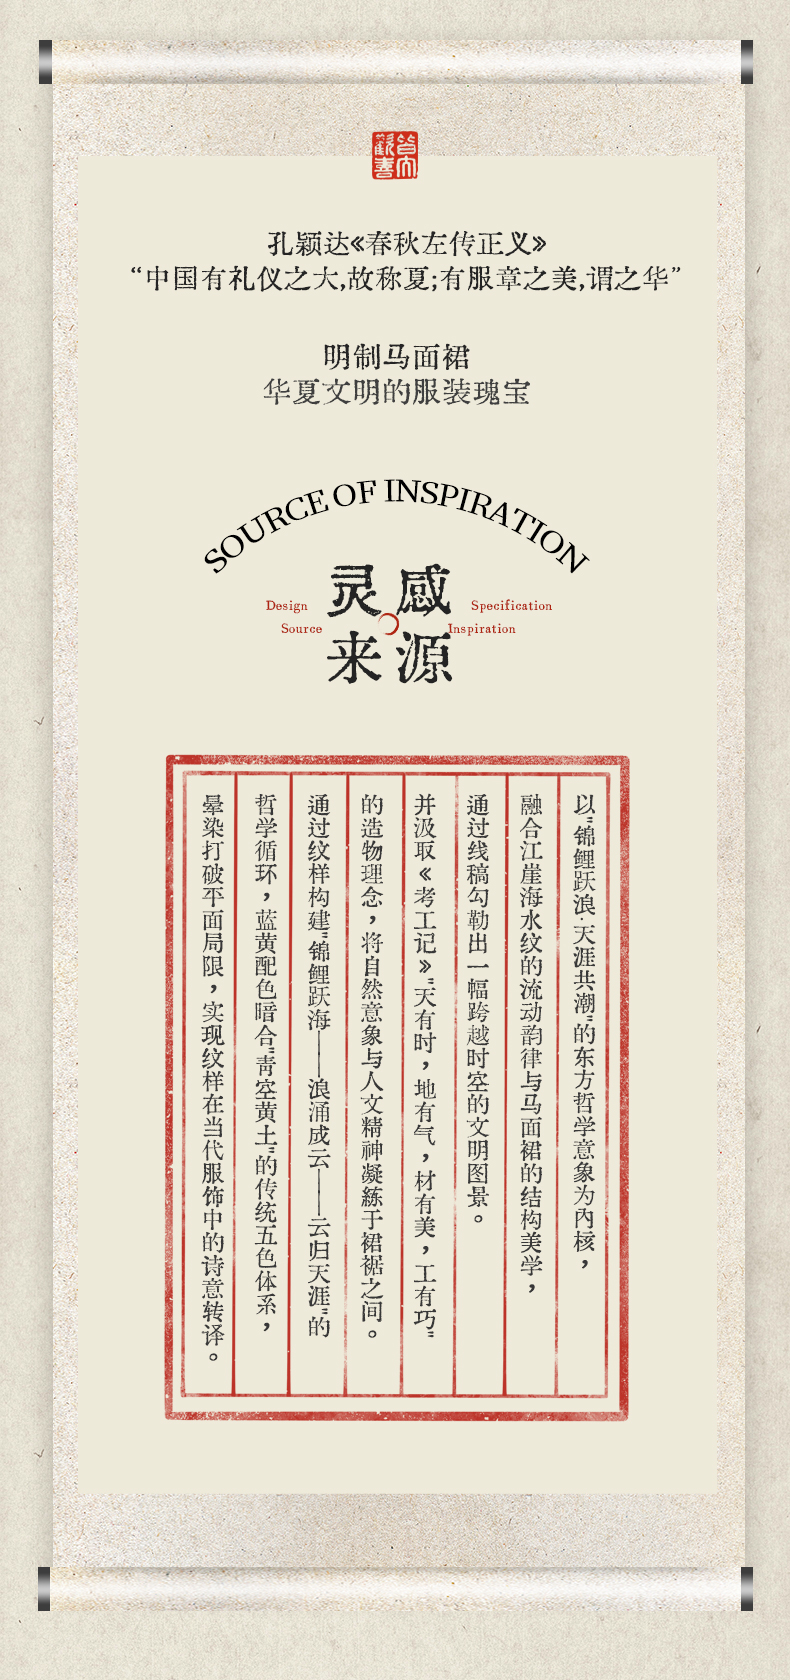 孔颖达《春秋左传正义》
“中国有礼仪之大,故称夏;有服章之美,谓之华”
明制马面裙
华夏文明的服装瑰宝
SOURCE OF INSPIRATION
灵感
来源
Design
Source
Specification
Inspiration
以"锦鲤跃浪·天涯共潮"的东方哲学意象为内核，
融合江崖海水纹的流动韵律与马面裙的结构美学，
通过线稿勾勒出一幅跨越时空的文明图景。
并汲取《考工记》"天有时，地有气，材有美，工有巧"
的造物理念，将自然意象与人文精神凝练于裙裾之间。
通过纹样构建"锦鲤跃海——浪涌成云——云归天涯"的
哲学循环，蓝黄配色暗合"青空黄土"的传统五色体系，
晕染打破平面局限，实现纹样在当代服饰中的诗意转译。